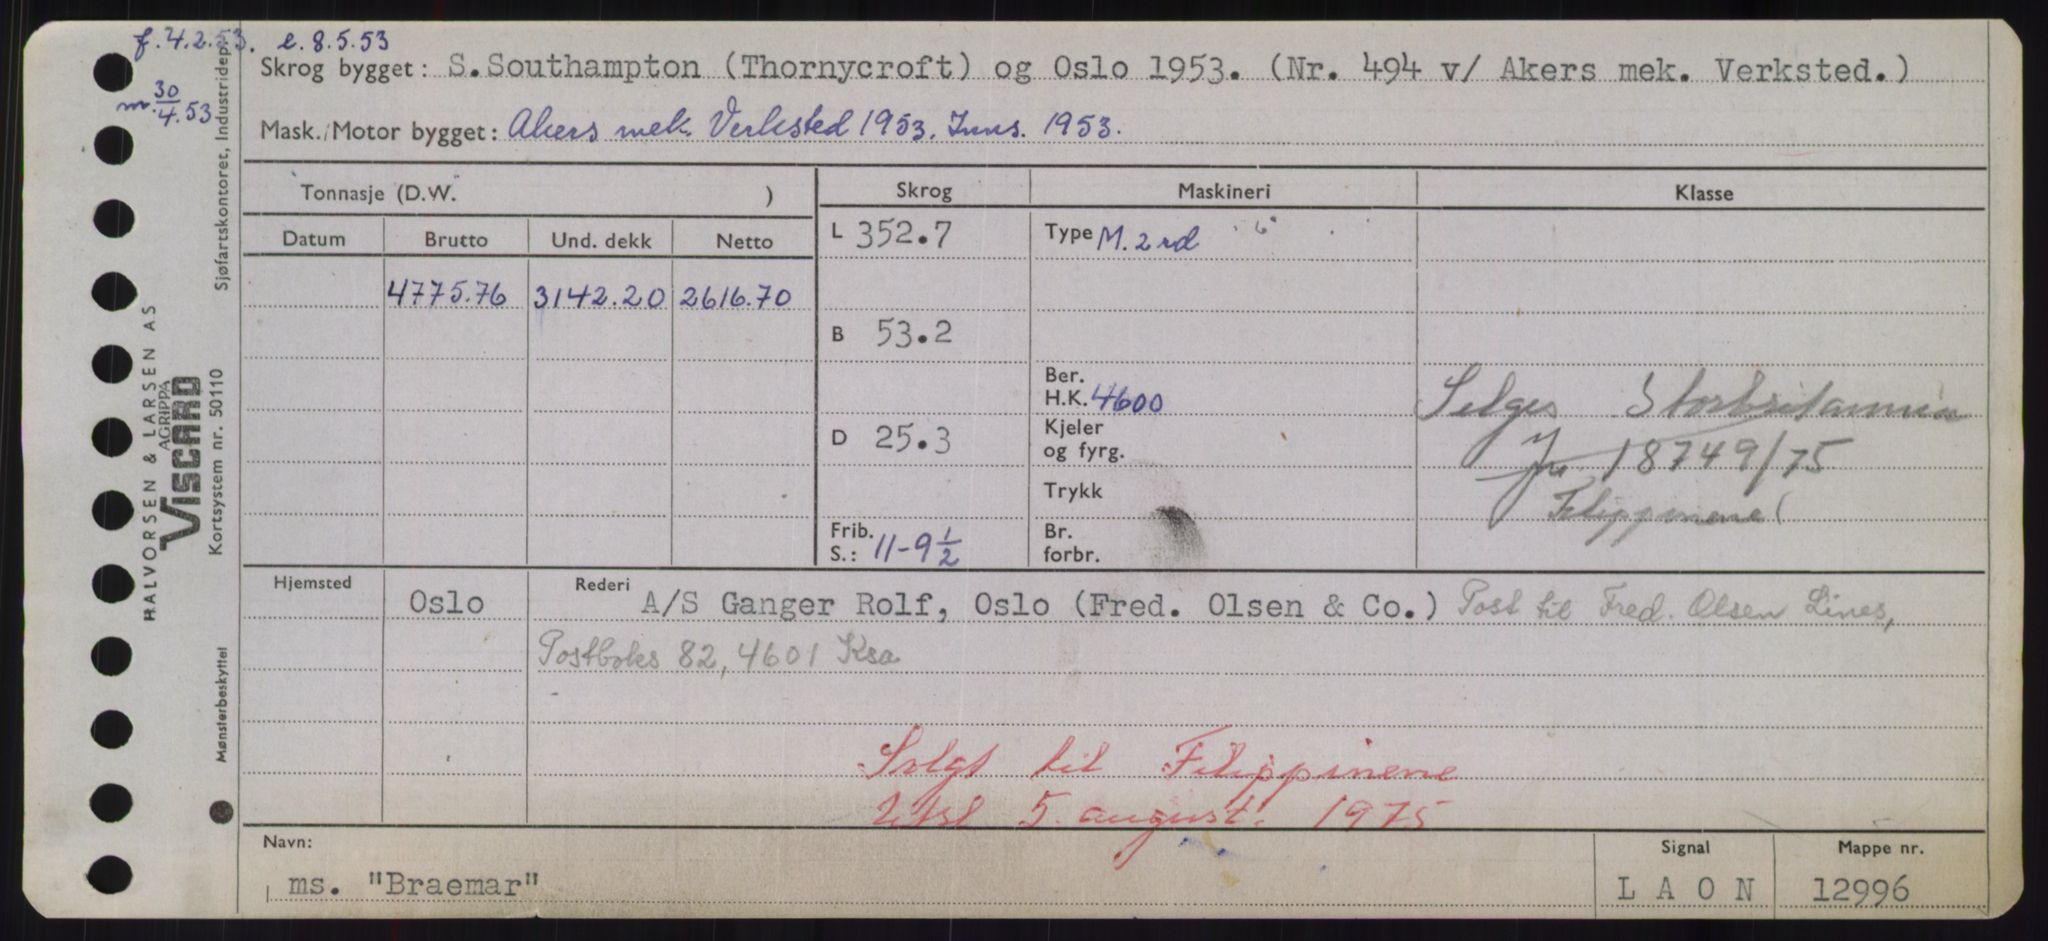 f. 4.2.53. e. 8.5.53
Skrog bygget: S.Southampton (Thornycroft) og Oslo 1953. (Nr. 494 v/ Akers mek. Verksted.)
m. 30/4.53
Mask./Motor bygget: Akers mek. Verksted 1953. Inns. 1953.
Tonnasje (D.W. ) Skrog Maskineri Klasse
Datum Brutto Und. dekk Netto L 352.7 Type M. 2 rd "6"
4775.76 3142.20 2616.70
B 53.2
Ber.
H.K. 4600 Selges Storbritannia
D 25.3 Kjeler
og fyrg. Jn. 18749/75
Trykk Filippinene
Frib.
S.: 11-9 1/2 Br.
forbr.
Hjemsted Oslo Rederi A/S Ganger Rolf, Oslo (Fred. Olsen & Co.) Post til Fred. Olsen Lines,
Postboks 82, 4601 Ksa
Solgt til Filippinene
Utsl 5. august. 1975
Navn: Signal Mappe nr.
ms. "Braemar" L A O N 12996
Sjøfartskontoret, Industridep.
HALVORSEN & LARSEN AS
AGRIPPA
VISCARD
Kortsystem nr. 50110
Mønsterbeskyttet